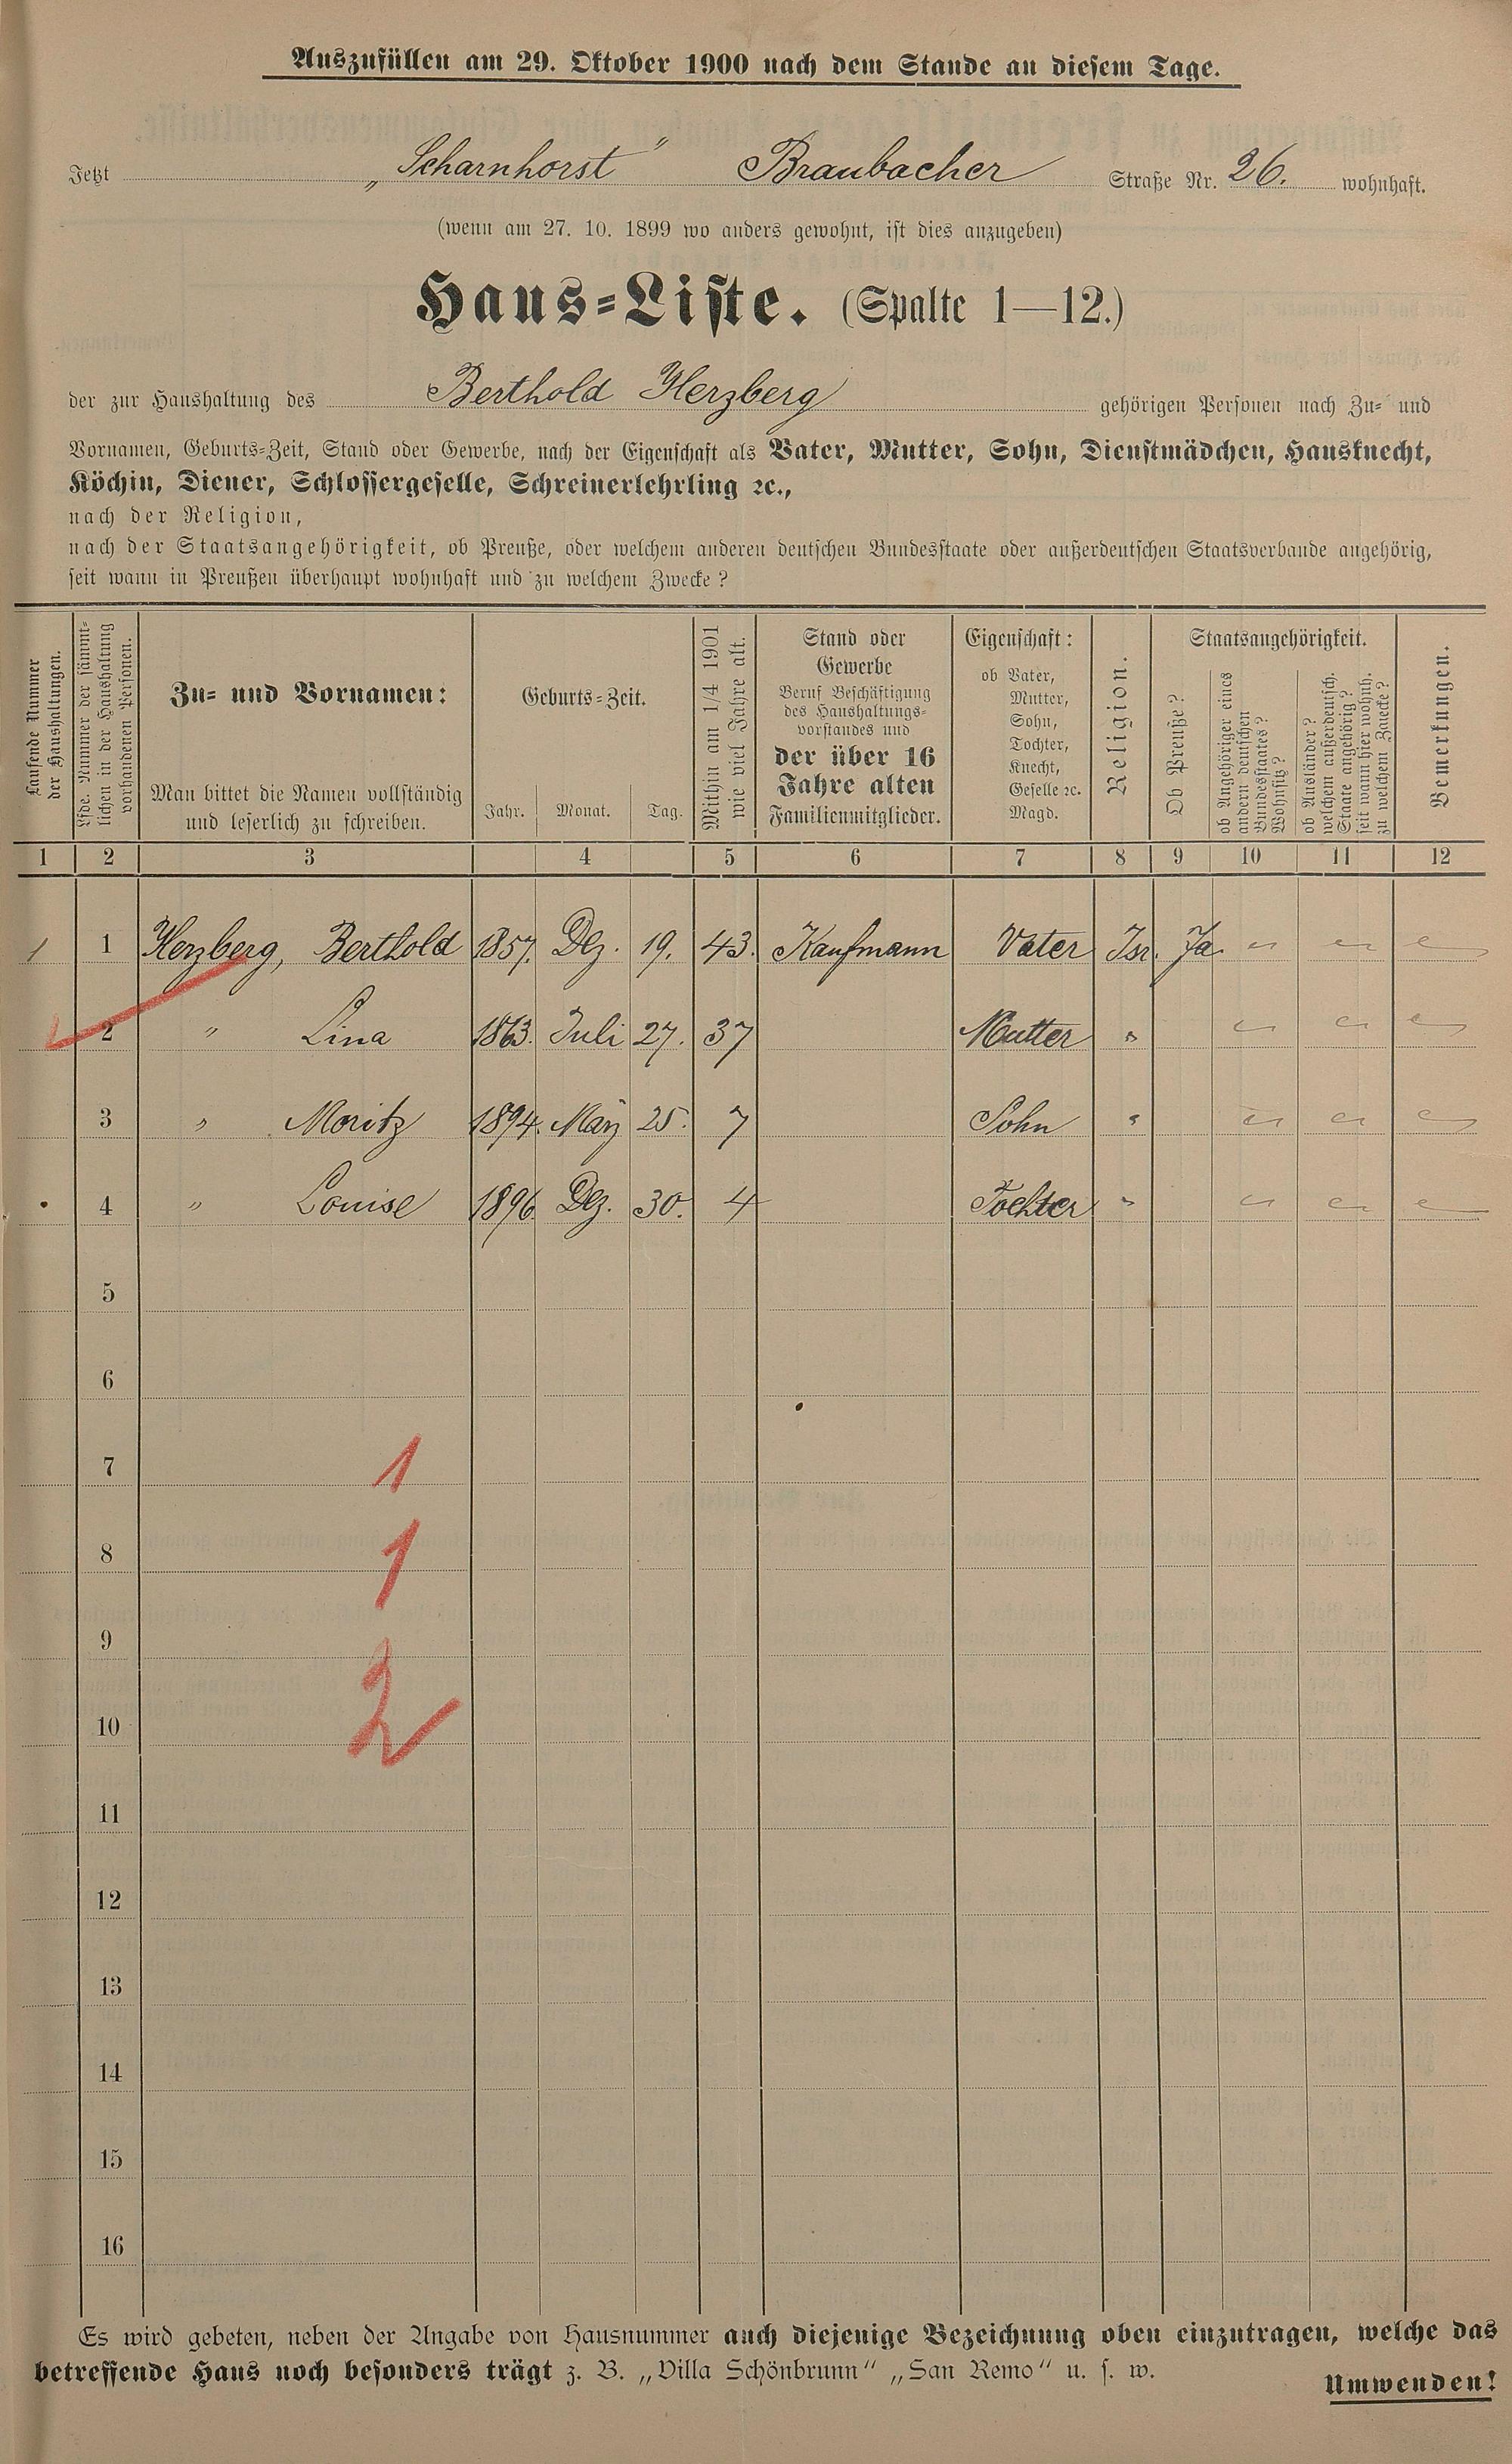 Auszufüllen am 29. Oktober 1900 nach dem Stande an diesem Tage.
Jetzt „Scharnhorst“ Braubacher Straße Nr. 26. wohnhaft.
(wenn am 27. 10. 1899 wo anders gewohnt, ist dies anzugeben)
Haus-Liste. (Spalte 1—12.)
der zur Haushaltung des Berthold Herzberg gehörigen Personen nach Zu- und
Vornamen, Geburts-Zeit, Stand oder Gewerbe, nach der Eigenschaft als Vater, Mutter, Sohn, Dienstmädchen, Hausknecht,
Köchin, Diener, Schlossergeselle, Schreinerlehrling ꝛc.,
nach der Religion,
nach der Staatsangehörigkeit, ob Preuße, oder welchem anderen deutschen Bundesstaate oder außerdeutschen Staatsverbande angehörig,
seit wann in Preußen überhaupt wohnhaft und zu welchem Zwecke?
Laufende Nummer
der Haushaltungen.
Lfde. Nummer der sämmt-
lichen in der Haushaltung
vorhandenen Personen.
Zu- und Vornamen:
Man bittet die Namen vollständig
und leserlich zu schreiben.
Geburts-Zeit.
Jahr. Monat. Tag.
Mithin am 1/4 1901
wie viel Jahre alt.
Stand oder
Gewerbe
Beruf Beschäftigung
des Haushaltungs-
vorstandes und
der über 16
Jahre alten
Familienmitglieder.
Eigenschaft:
ob Vater,
Mutter,
Sohn,
Tochter,
Knecht,
Geselle ꝛc.
Magd.
Religion.
Staatsangehörigkeit.
Ob Preuße?
ob Angehöriger eines
andern deutschen
Bundesstaates?
Wohnsitz?
ob Ausländer?
welchem außerdeutsch.
Staate angehörig?
seit wann hier wohnh.
zu welchem Zwecke?
Bemerkungen.
1 2 3 4 5 6 7 8 9 10 11 12
1 1 Herzberg, Berthold 1857. Dez. 19. 43. Kaufmann Vater Isr. Ja.
2 " Lina 1863. Juli 27. 37 Mutter "
3 " Moritz 1894. März 25. 7 Sohn "
4 " Louise 1896 Dez. 30. 4 Tochter "
5
6
7 1
8 1
9
10 2
11
12
13
14
15
16
Es wird gebeten, neben der Angabe von Hausnummer auch diejenige Bezeichnung oben einzutragen, welche das
betreffende Haus noch besonders trägt z. B. „Villa Schönbrunn“ „San Remo“ u. s. w.
Umwenden!